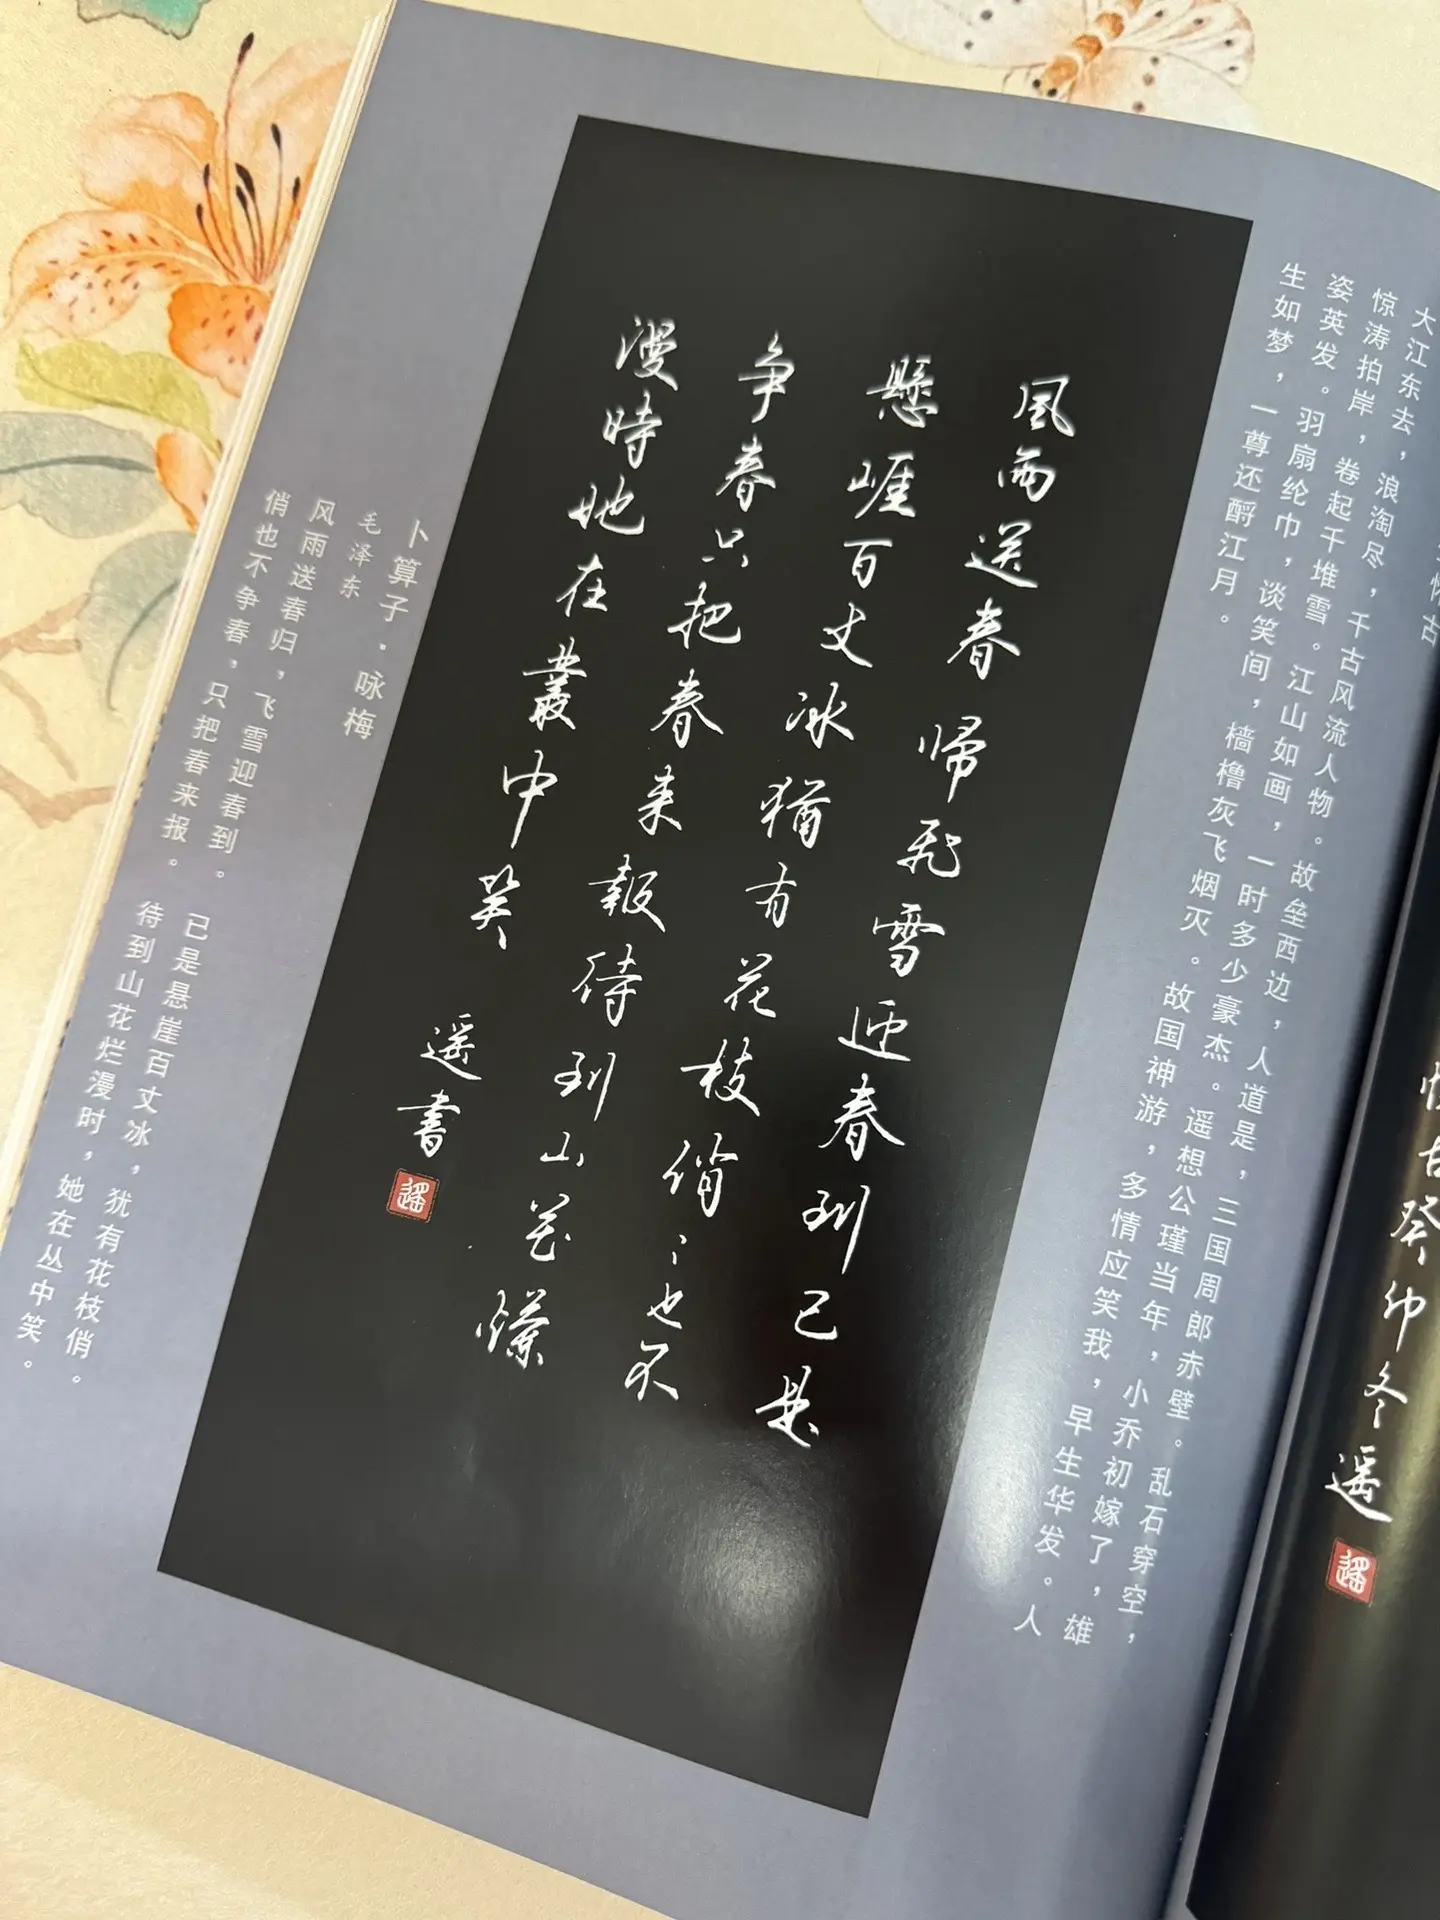 怀古癸卯冬遥
遥
怀古
大江东去，浪淘尽，千古风流人物。故垒西边，人道是，三国周郎赤壁。乱石穿空，
惊涛拍岸，卷起千堆雪。江山如画，一时多少豪杰。遥想公瑾当年，小乔初嫁了，雄
姿英发。羽扇纶巾，谈笑间，樯橹灰飞烟灭。故国神游，多情应笑我，早生华发。人
生如梦，一尊还酹江月。
風雨送春帰飛雪迎春到已是
懸崖百丈冰猶有花枝俏〻也不
争春只把春来報待到山花爛
漫時她在叢中笑
遥書
遥
卜算子·咏梅
毛泽东
风雨送春归，飞雪迎春到。已是悬崖百丈冰，犹有花枝俏。
俏也不争春，只把春来报。待到山花烂漫时，她在丛中笑。